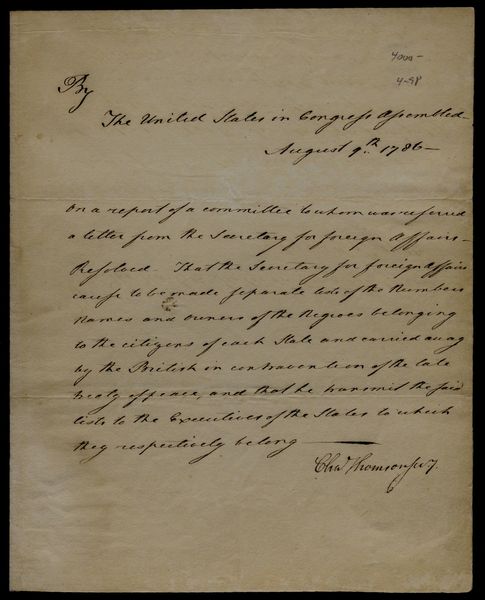 4000-
4-98
By
The United States in Congress Assembled-
August 9th. 1786-
On a report of a committee to whom was referred
a letter from the Secretary for foreign Affairs-
Resolved- That the Secretary for foreign Affairs
cause to be made separate lists of the Numbers
Names and owners of the Negroes belonging
to the citizens of each State and carried away
by the British in contravention of the late
treaty of peace, and that he transmit the said
lists to the Executives of the States to which
they respectively belong
Chas Thomson secy.